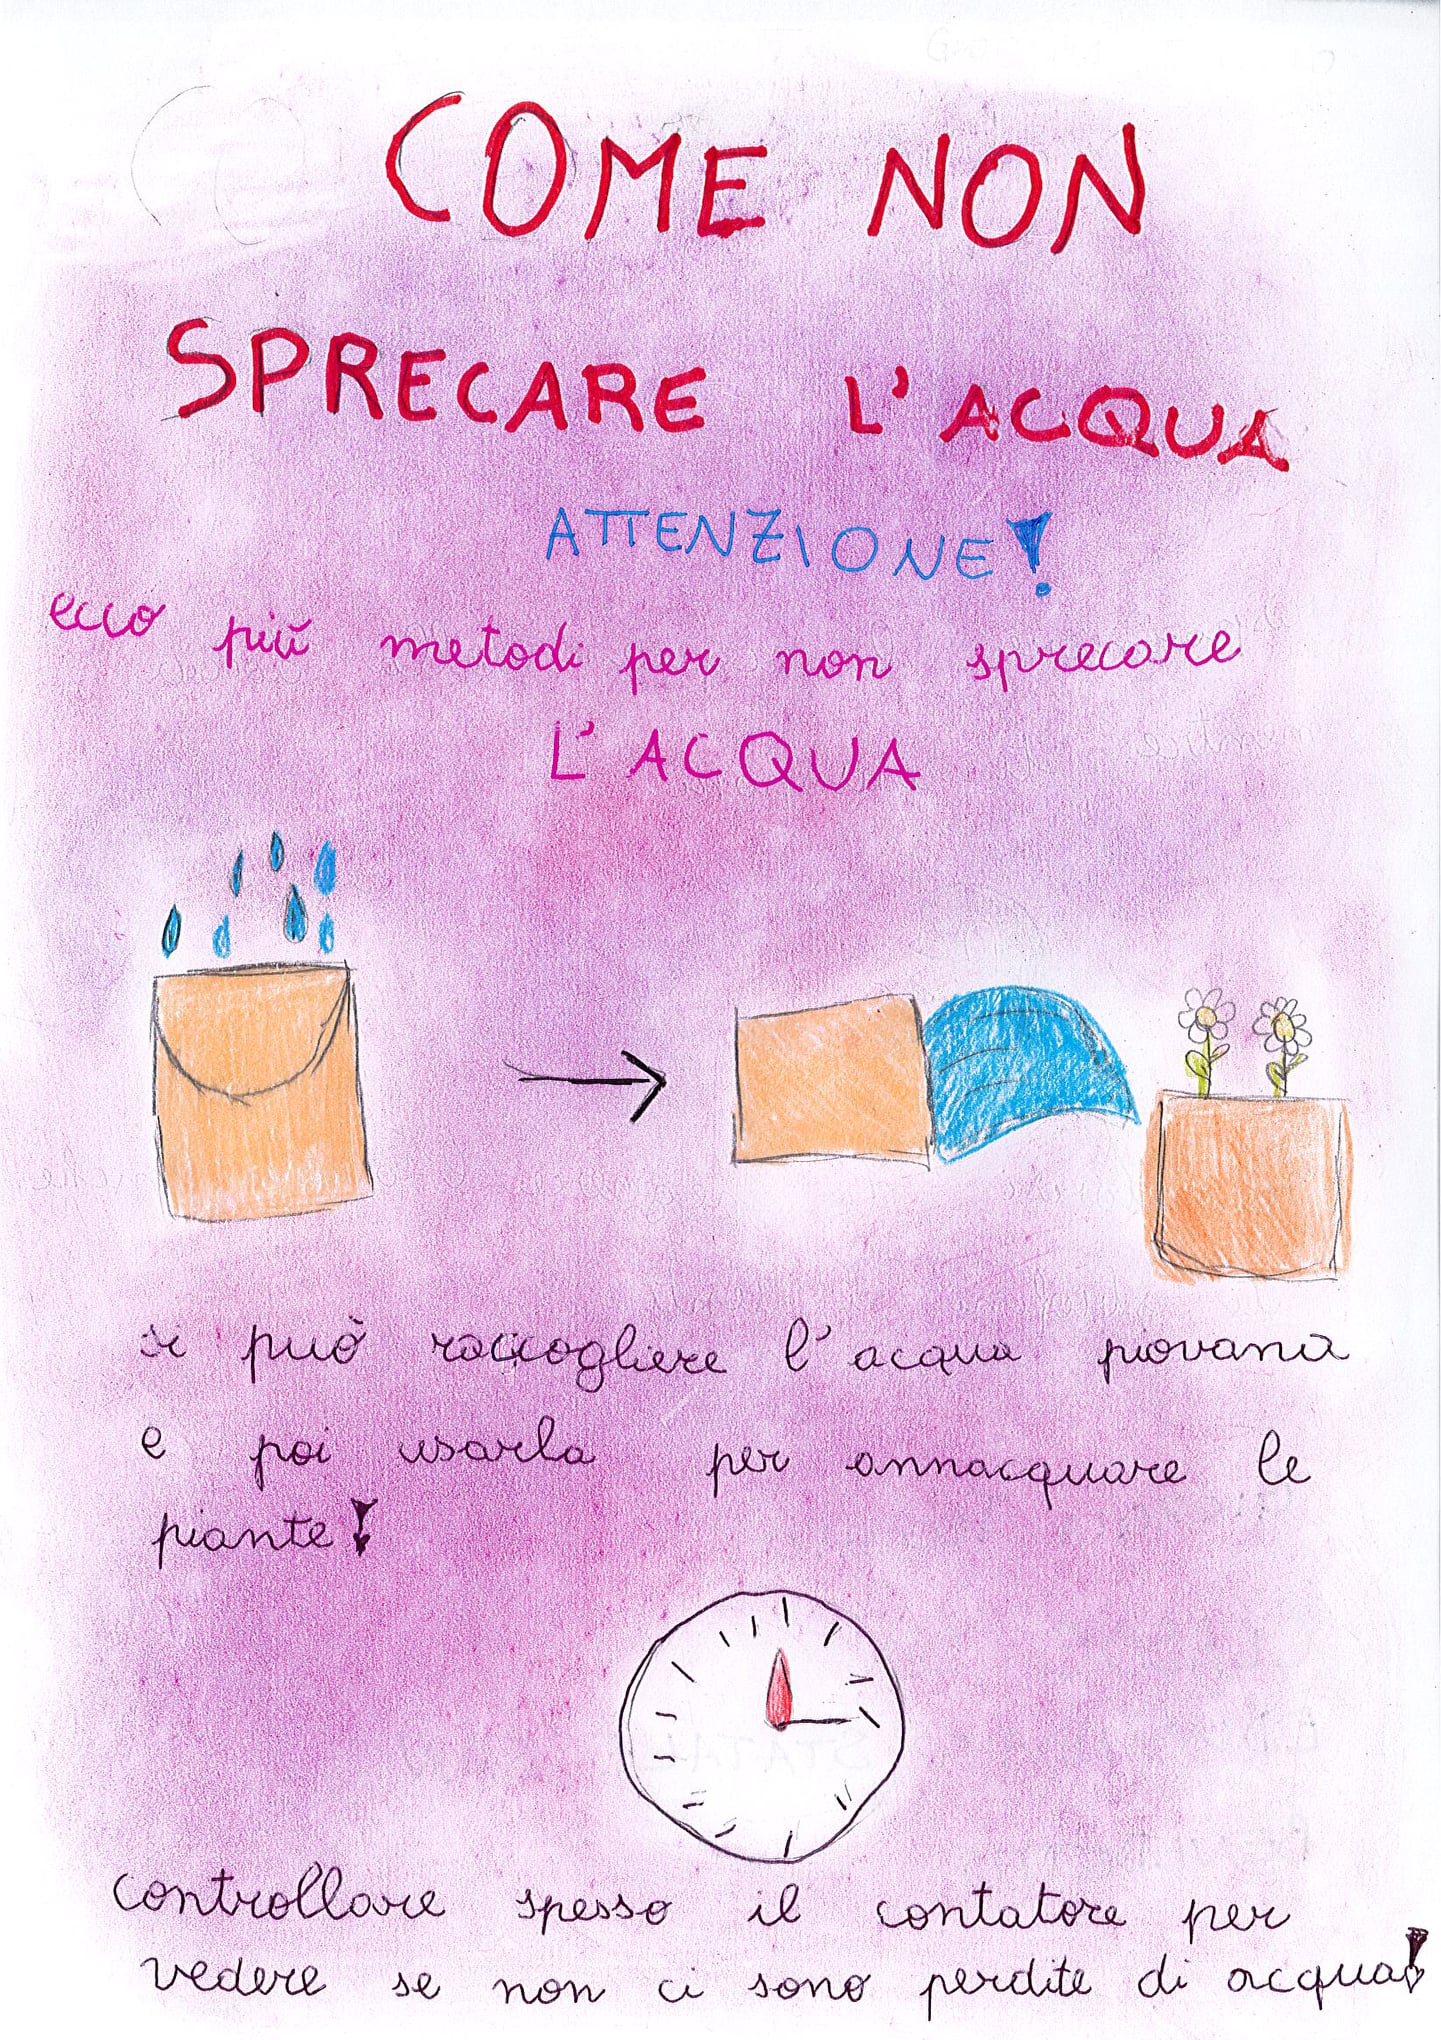 COME NON
SPRECARE L'ACQUA
ATTENZIONE!
ecco più metodi per non sprecare
L'ACQUA
si può raccogliere l'acqua piovana
e poi usarla per annacquare le
piante!
controllare spesso il contatore per
vedere se non ci sono perdite di acqua!